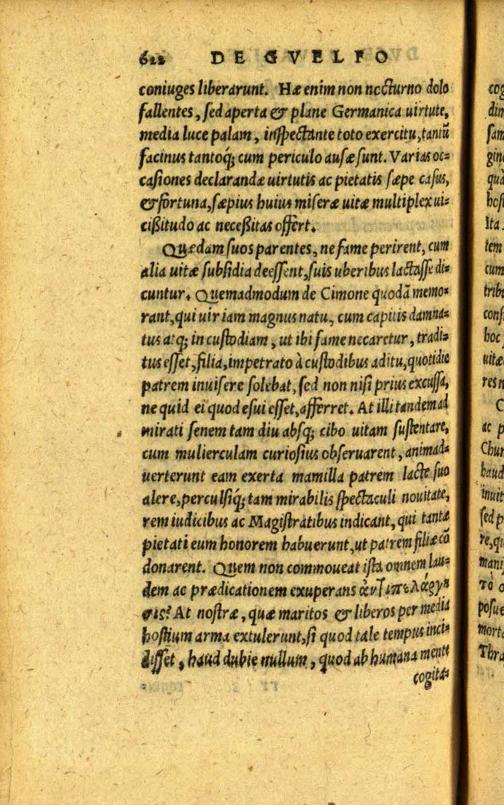 622 DE GVELFO
coniuges liberarunt. Hæ enim non nocturno dolo
fallentes, sed aperta & plane Germanica uirtute,
media luce palam, inspectante toto exercitu, tantũ
facinus tantoq; cum periculo ausæ sunt. Varias oc=
casiones declarandæ uirtutis ac pietatis sæpe casus,
& fortuna, sæpius huius miseræ uitæ multiplex ui=
cißitudo ac neceßitas offert.
Quædam suos parentes, ne fame perirent, cum
alia uitæ subsidia deessent, suis uberibus lactasse di=
cuntur. Quemadmodum de Cimone quodã memo=
rant, qui uir iam magnus natu, cum capitis damna=
tus atq; in custodiam, ut ibi fame necaretur, tradi=
tus esset, filia, impetrato à custodibus aditu, quotidie
patrem inuisere solebat, sed non nisi prius excussa,
ne quid ei quod esui esset, afferret. At illi tandem ad
mirati senem tam diu absq; cibo uitam sustentare,
cum mulierculam curiosius obseruarent, animad=
uerterunt eam exerta mamilla patrem lacte suo
alere, perculsiq; tam mirabilis spectaculi nouitate,
rem iudicibus ac Magistratibus indicant, qui tantæ
pietati eum honorem habuerunt, ut patrem filiæ cõ
donarent. Quem non commoueat ista omnem lau=
dem ac prædicationem exuperans ἀντιπελάργη
σις? At nostræ, quæ maritos & liberos per media
hostium arma extulerunt, si quod tale tempus inci=
disset, haud dubie nullum, quod ab humana mente
cogita=